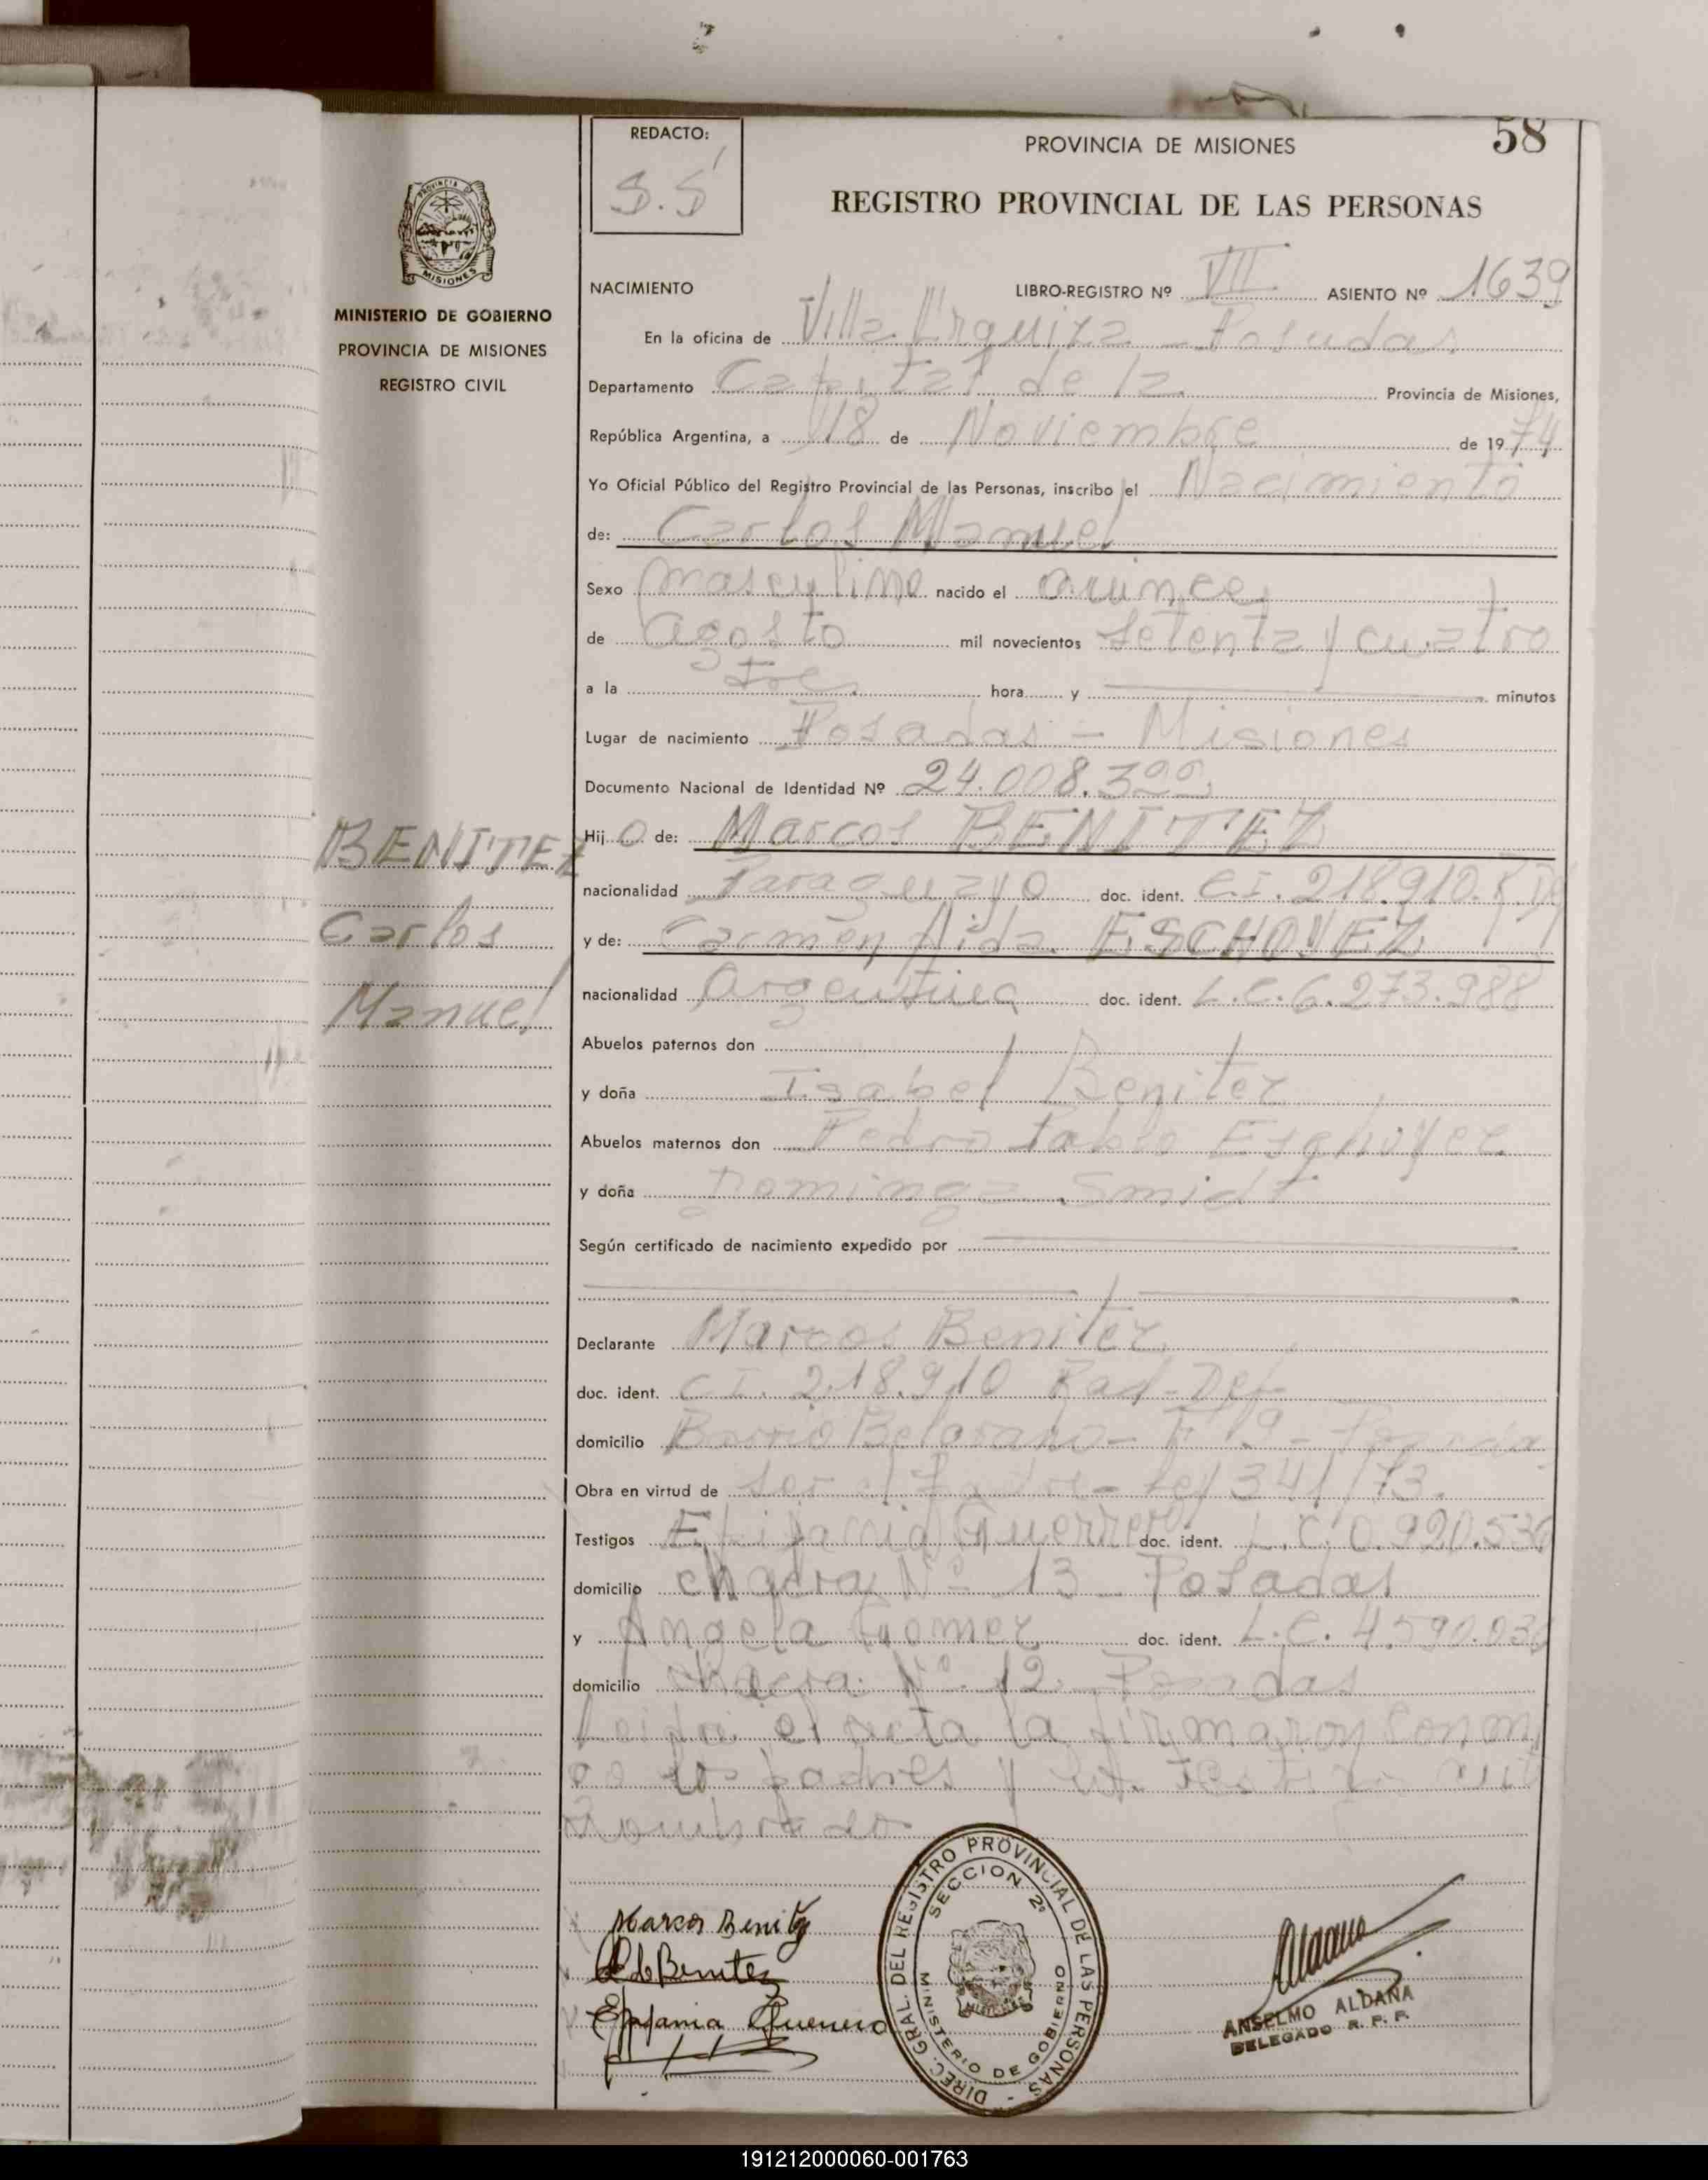 58
REDACTO:
S.S
PROVINCIA DE MISIONES
REGISTRO PROVINCIAL DE LAS PERSONAS
PROVINCIA DE
MISIONES
MINISTERIO DE GOBIERNO
PROVINCIA DE MISIONES
REGISTRO CIVIL
NACIMIENTO LIBRO-REGISTRO Nº VII ASIENTO Nº 1639
En la oficina de Villa Urquiza - Posadas
Departamento Capital de la Provincia de Misiones,
República Argentina, a 18 de Noviembre de 1974
Yo Oficial Público del Registro Provincial de las Personas, inscribo el Nacimiento
de: Carlos Manuel
Sexo masculino nacido el quince
de agosto mil novecientos setenta y cuatro
a la hora y minutos
Lugar de nacimiento Posadas - Misiones
Documento Nacional de Identidad Nº 24.008.300
BENITEZ
Carlos
Manuel
Hijo de: Marcos BENITEZ
nacionalidad Paraguayo doc. ident. C.I. 218.910.
y de: Carmen Aida ESCHOVEZ
nacionalidad Argentina doc. ident. L.C. 6.273.988
Abuelos paternos don
y doña Isabel Benitez
Abuelos maternos don Pedro Pablo
y doña Dominga Smidt
Según certificado de nacimiento expedido por
Declarante Marcos Benitez
doc. ident. C I. 218.910 Rad-Def
domicilio Barrio Belgrano - Posadas
Obra en virtud de ser el Padre - Ley 341/73.
Testigos Epifania Guerrero doc. ident. L.C. 0.920.536
domicilio chacra Nº 13 - Posadas
y Angela Gomez doc. ident. L.C. 4.590.03
domicilio chacra Nº 12 - Posadas
Leida el acta la firmaron conmi
go los padres y los testigos
nombrados
Marcos Benitez
de Benitez
Epifania Guerrero
DIREC. GRAL. DEL REGISTRO PROVINCIAL DE LAS PERSONAS -
SECCION 2º
MINISTERIO DE GOBIERNO
Aldana
ANSELMO ALDANA
DELEGADO R. P. P.
191212000060-001763